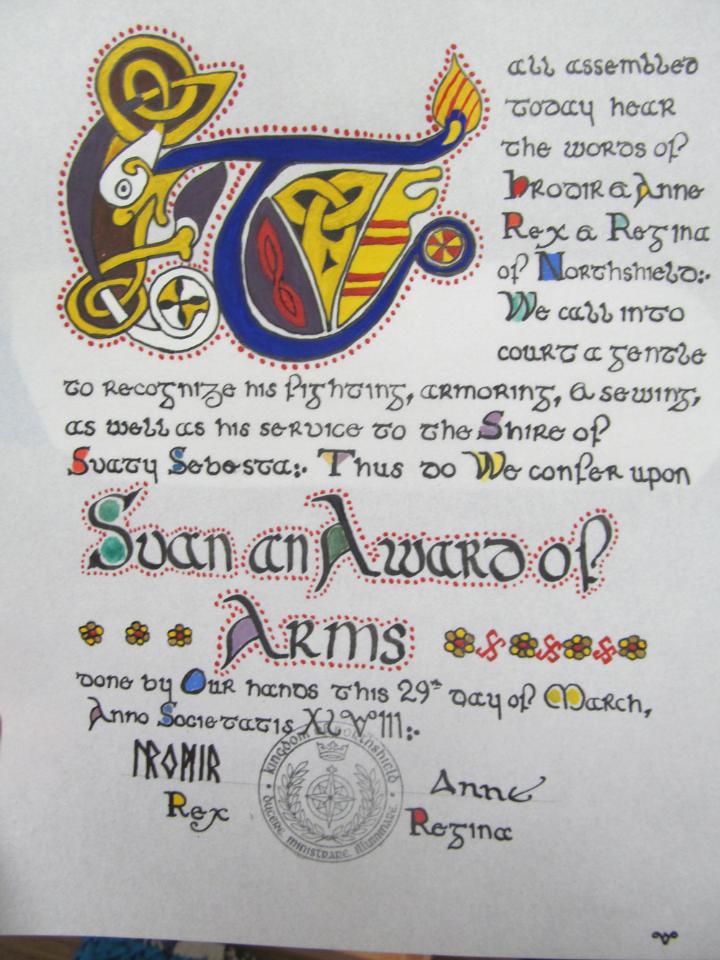 all assembled
today hear
the words of
Hrodir & Anne
Rex & Regina
of Northshield:.
We call into
court a gentle
to recognize his fighting, armoring, & sewing,
as well as his service to the Shire of
Svaty Sebesta:. Thus do We confer upon
Svan an Award of
Arms
done by Our hands this 29th day of March,
Anno Societatis XLVIII:.
Kingdom of Northshield
ducere ministrare illuminare
Anne
Rex
Regina